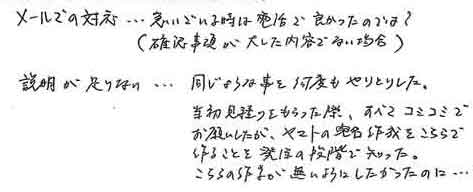 メールでの対応 … 急いでいる時は電話で良かったのでは?
(確認事項が大した内容でない場合)
説明が足りない … 同じような事を何度もやりとりした。
当初見積りをもらった際、すべてコミコミで
お願いしたが、ヤマトの宛名作成をこちらで
作ることを発注の段階で知った。
こちらの作業が無いようにしたかったのに…